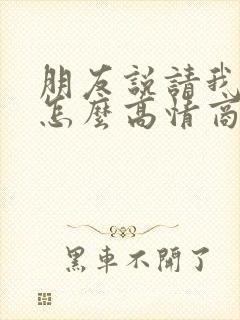 朋友説請我
怎麼高情商
黑車不開了